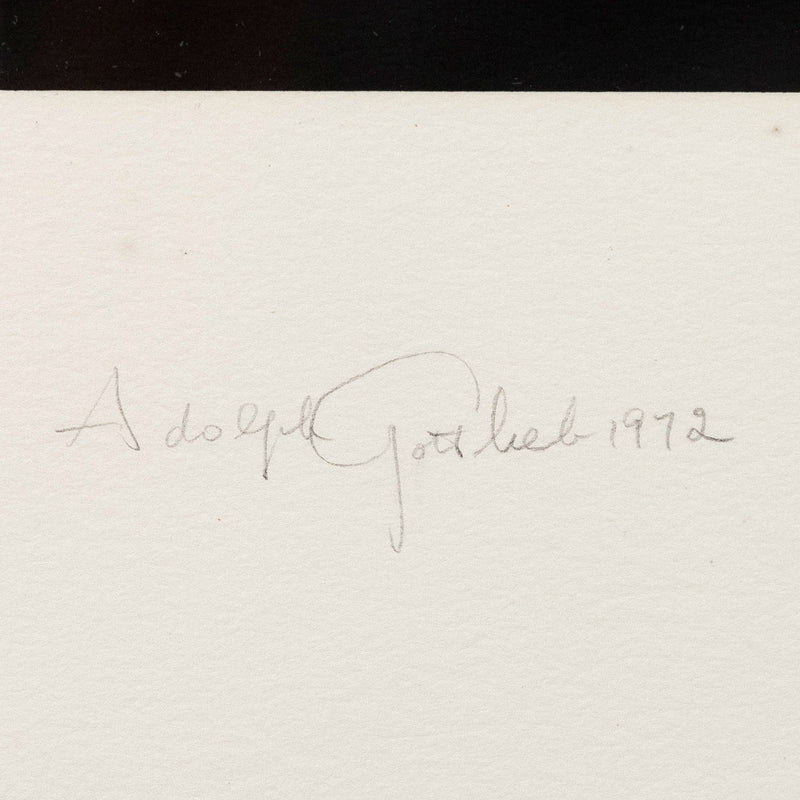 Adolph Gottlieb 1972